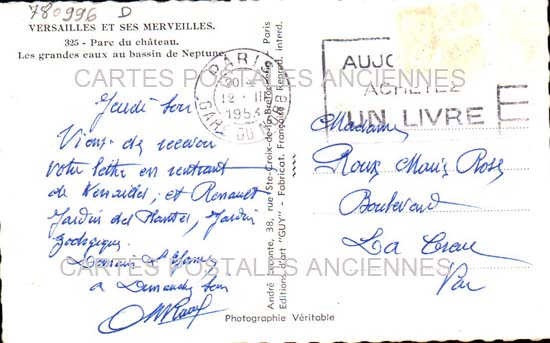 780996 D
VERSAILLES ET SES MERVEILLES.
325 - Parc du château.
Les grandes eaux au bassin de Neptune.
PARIS
12 - II
1953
GARE DU NORD
AUJO
ACHETEZ
UN LIVRE
CARTES POSTALES ANCIENNES
Jeudi soir
Viens de recevoir
votre lettre en rentrant
de Versailles, et Renault
Jardin des Plantes, Jardin
Zoologique
Demain
à Dimanche soir
Madame
Roux Marie Rose
Boulevard
La Crau
Var
CARTES POSTALES ANCIENNES
André Leconte, 38, rue Ste-Croix-de-la-Bretonnerie - Paris
Editions d'art "GUY" - Fabricat. Française - Reprod. interd.
Photographie Véritable